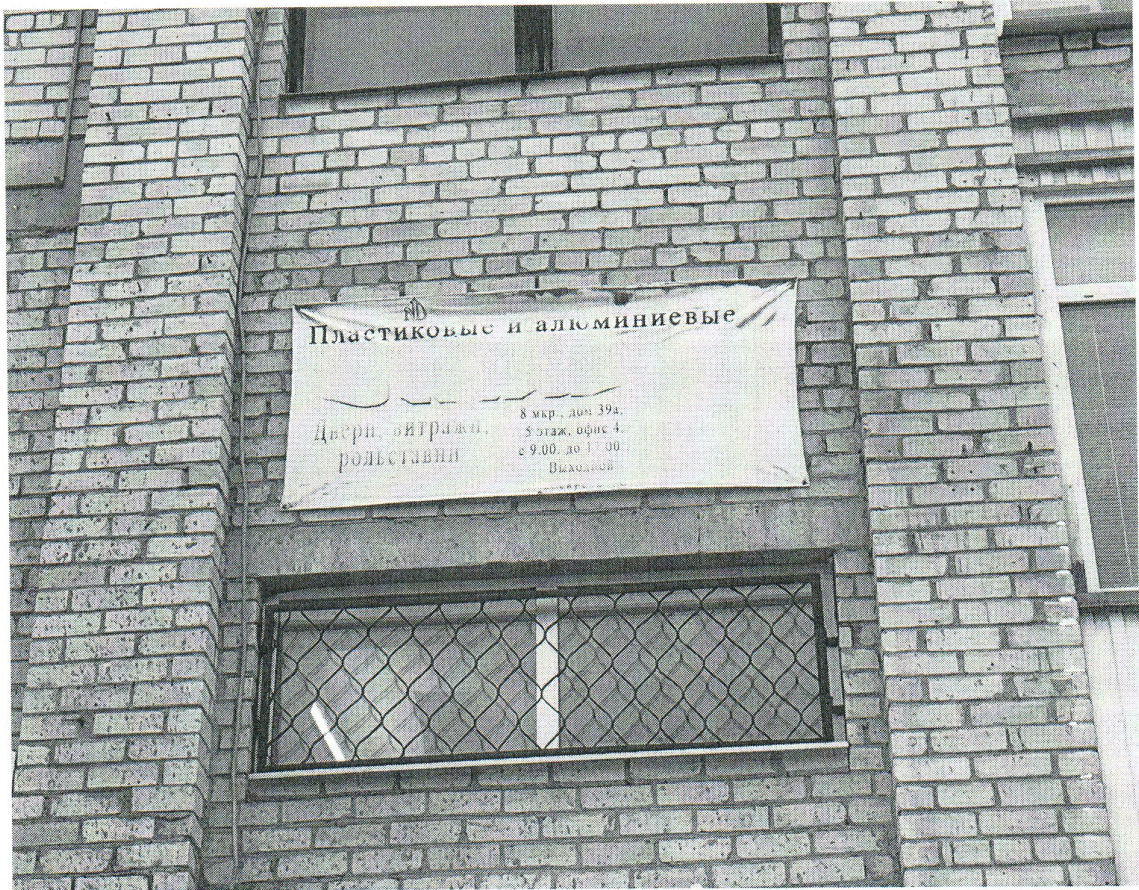 Пластиковые и алюминиевые
Двери, витражи,
рольставни
8 мкр., дом 39а,
5 этаж, офис 4.
с 9.00. до
Выходной